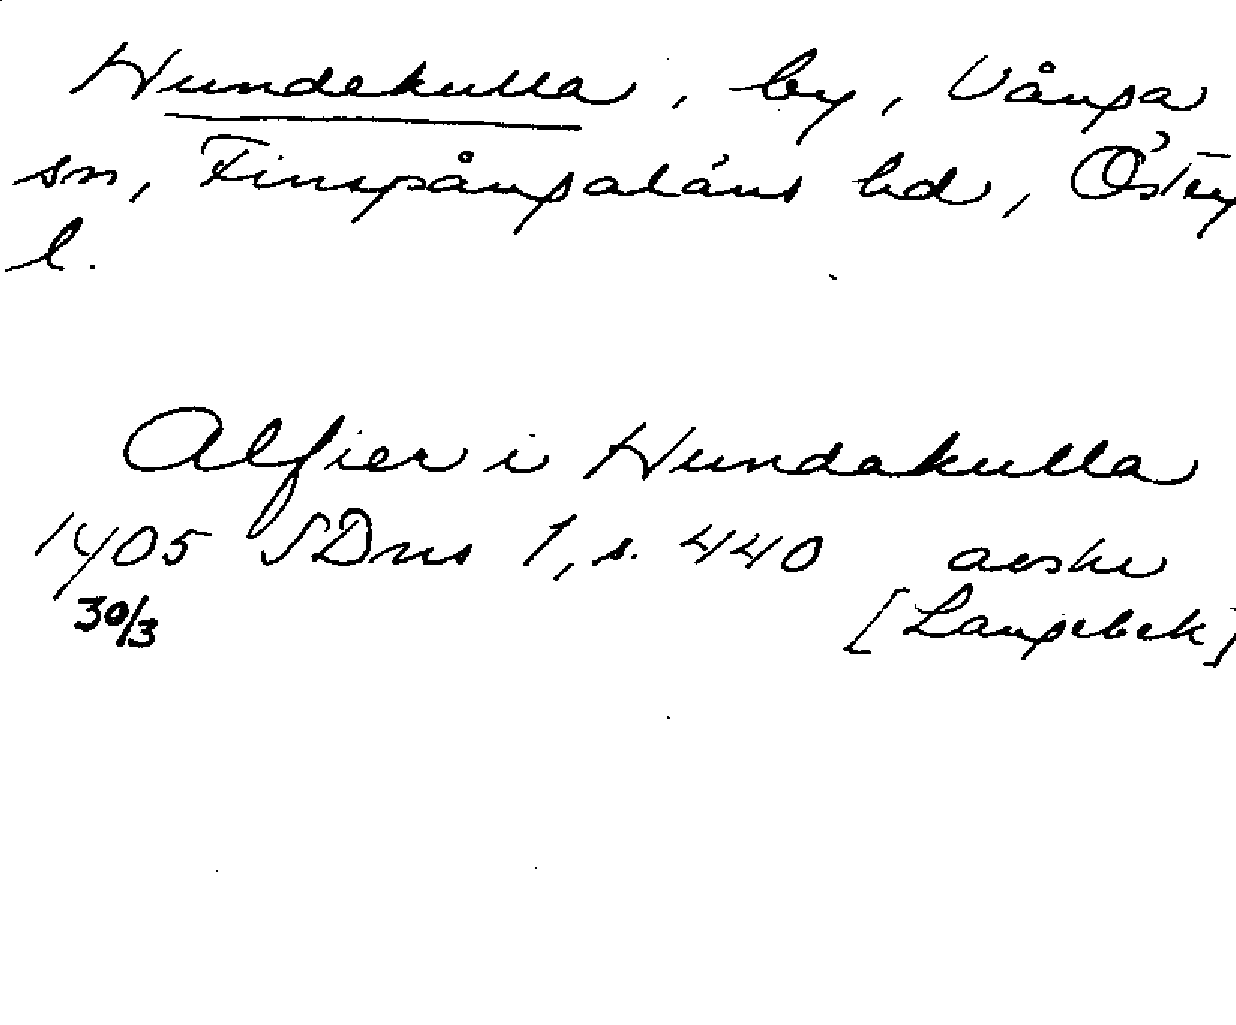 Hundekulla, by, Vånga
sn, Finspångaläns hd, Österg
l.
Alfier i Hundakulla
1405 SDns 1, s. 440 avskr
30/3 [Langebek]